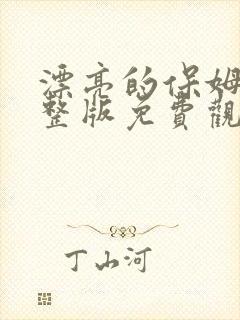 漂亮的保姆
整版免費觀
丁山河